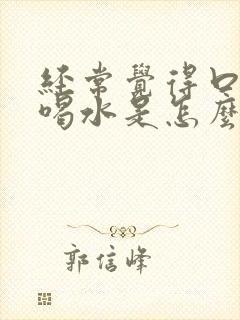 经常觉得口
喝水是怎麼
郭信峰